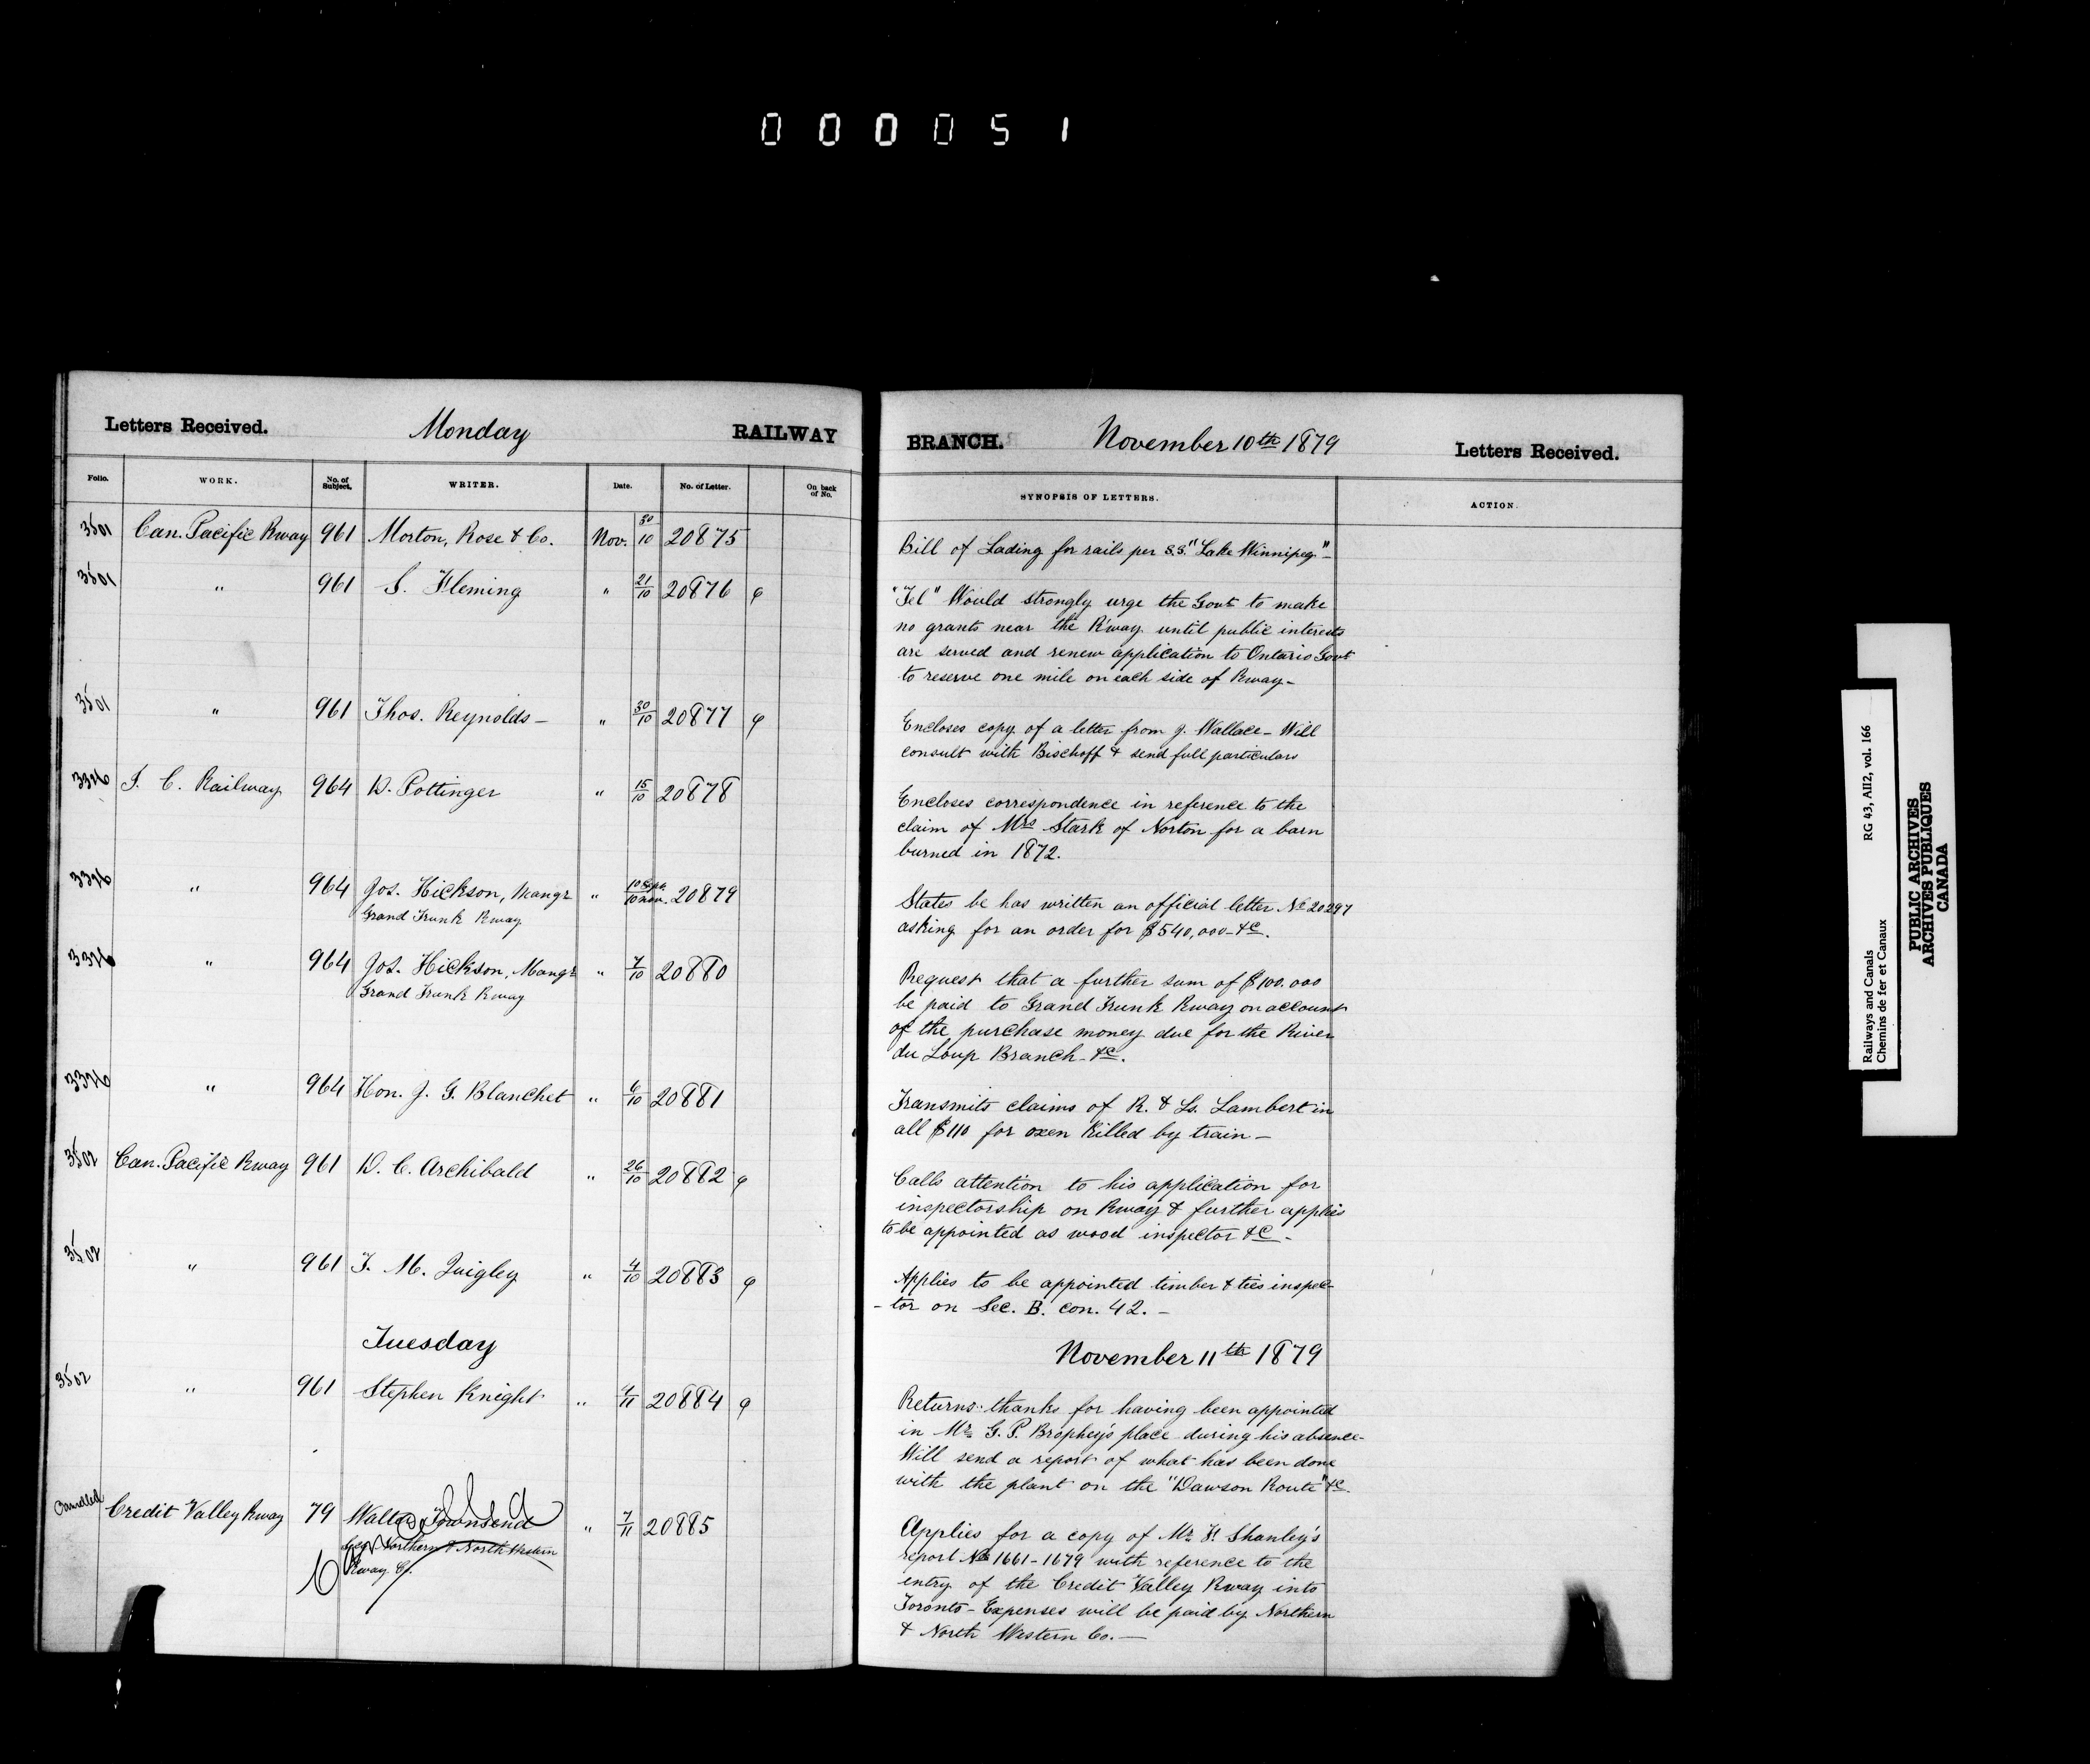 000051
Letters Received. Monday RAILWAY
Folio. WORK. No. of Subject. WRITER. Date. No. of Letter. On back of No.
3501 Can. Pacific Rway 961 Morton, Rose & Co. Nov. 30/10 20875
3501 " 961 S. Fleming " 21/10 20876 φ
3501 " 961 Thos. Reynolds - " 30/10 20877 φ
3326 I. C. Railway 964 D. Pottinger " 15/10 20878
3326 " 964 Jos. Hickson, Mangr " 10 Sept./10 nov. 20879
Grand Trunk Rway
3326 " 964 Jos. Hickson, Mangr " 7/10 20880
Grand Trunk Rway
3326 " 964 Hon. J. G. Blanchet " 6/10 20881
3502 Can. Pacific Rway 961 D. C. Archibald " 26/10 20882 φ
3502 " 961 T. M. Quigley " 4/10 20883 φ
Tuesday
3502 " 961 Stephen Knight " 4/11 20884 φ
Cancelled Credit Valley Rway 79 Walter Townsend " 7/11 20885
Secy Northern & North Western
Rway Co.
BRANCH. November 10th 1879 Letters Received.
SYNOPSIS OF LETTERS. ACTION.
Bill of Lading for rails per S.S. "Lake Winnipeg" -
"Tel" Would strongly urge the Govt to make
no grants near the R'way until public interests
are served and renew application to Ontario Govt
to reserve one mile on each side of Rway -
Encloses copy of a letter from J. Wallace - Will
consult with Bischoff & send full particulars
Encloses correspondence in reference to the
claim of Mrs Stark of Norton for a barn
burned in 1872.
States he has written an official letter No 20297
asking for an order for $540,000 - &c.
Request that a further sum of $100.000
be paid to Grand Trunk Rway on account
of the purchase money due for the River
du Loup Branch - &c.
Transmits claims of R. & Ls. Lambert in
all $110 for oxen killed by train -
Calls attention to his application for
inspectorship on Rway & further applies
to be appointed as wood inspector &c -
Applies to be appointed timber & ties inspec-
-tor on Sec. B. con. 42. -
November 11th 1879
Returns thanks for having been appointed
in Mr G. P. Brophey's place during his absence -
Will send a report of what has been done
with the plant on the "Dawson Route" &c.
Applies for a copy of Mr F. Shanley's
report No 1661-1679 with reference to the
entry of the Credit Valley Rway into
Toronto - Expenses will be paid by Northern
& North Western Co. -
Railways and Canals RG 43, AII2, vol. 166
Chemins de fer et Canaux
PUBLIC ARCHIVES
ARCHIVES PUBLIQUES
CANADA